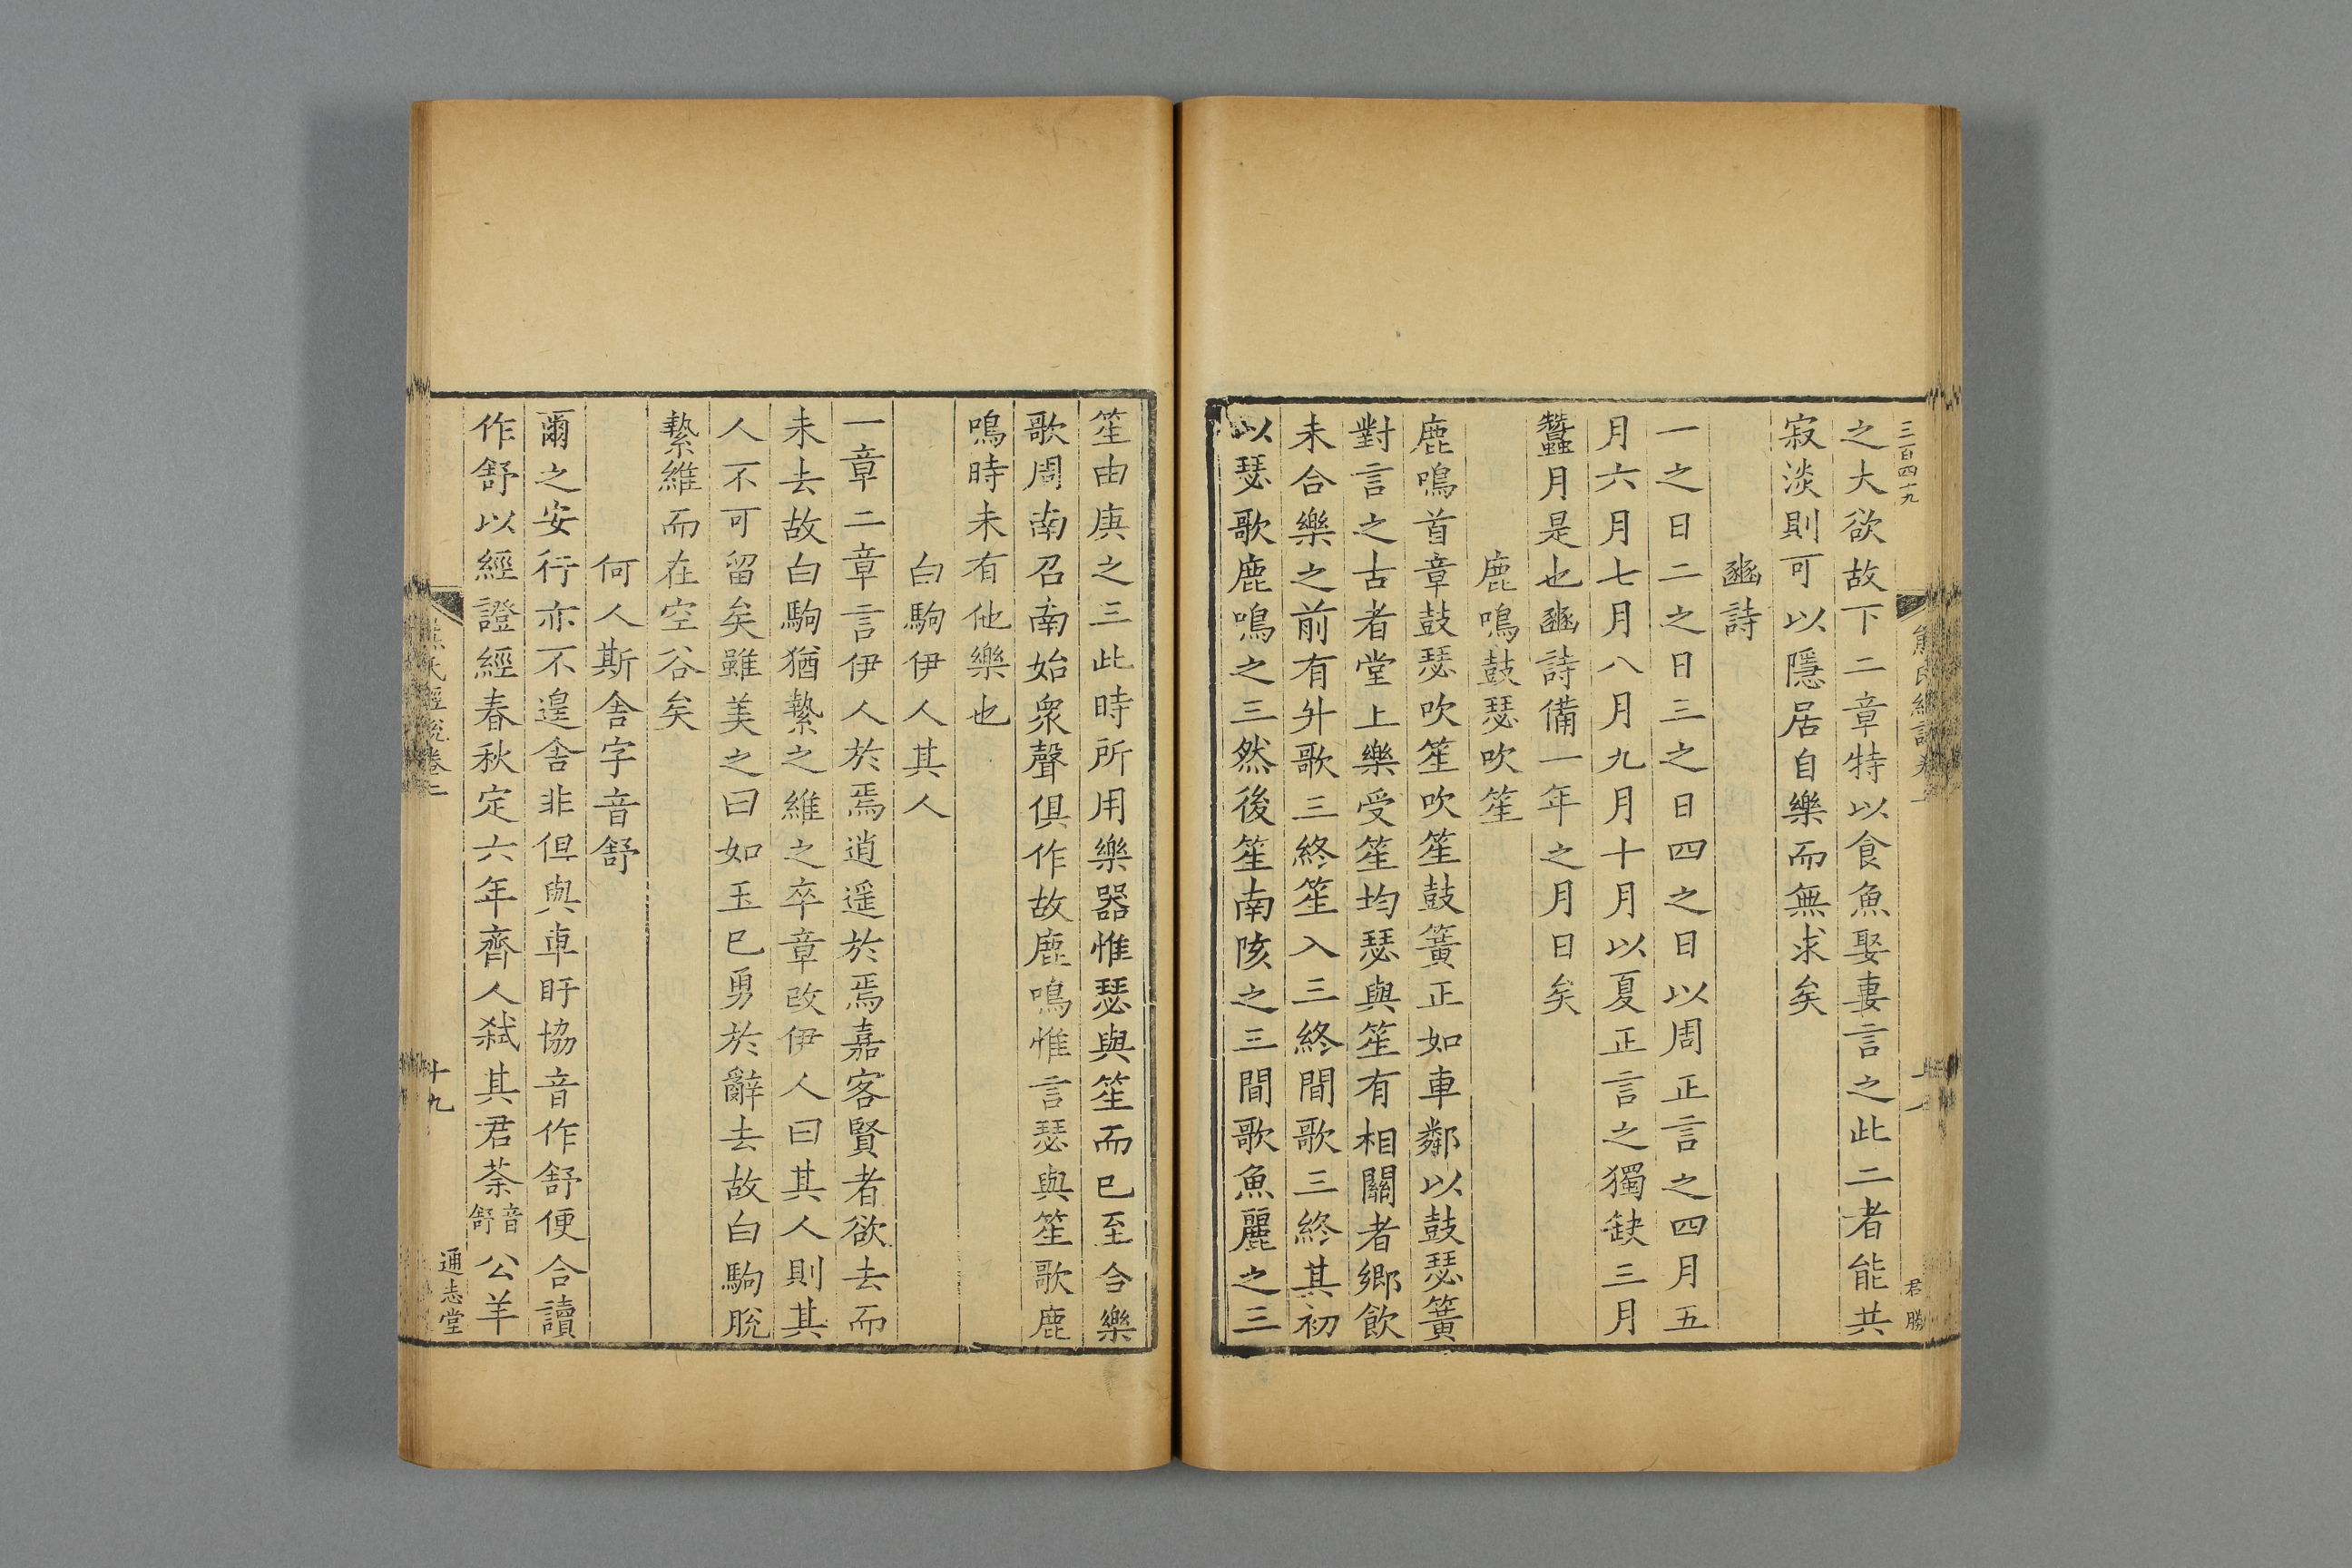 三百四十九
熊氏經說卷二
君勝
之大欲故下二章特以食魚娶妻言之此二者能共
寂淡則可以隱居自樂而無求矣
豳詩
一之日二之日三之日四之日以周正言之四月五
月六月七月八月九月十月以夏正言之獨缺三月
蠶月是也豳詩備一年之月日矣
鹿鳴鼓瑟吹笙
鹿鳴首章鼓瑟吹笙吹笙鼓簧正如車鄰以鼓瑟簧
對言之古者堂上樂受笙均瑟與笙有相關者鄉飲
未合樂之前有升歌三終笙入三終間歌三終其初
以瑟歌鹿鳴之三然後笙南陔之三間歌魚麗之三
笙由庚之三此時所用樂器惟瑟與笙而已至合樂
歌周南召南始衆聲俱作故鹿鳴惟言瑟與笙歌鹿
鳴時未有他樂也
白駒伊人其人
一章二章言伊人於焉逍遥於焉嘉客賢者欲去而
未去故白駒猶縶之維之卒章改伊人曰其人則其
人不可留矣雖美之曰如玉已勇於辭去故白駒脫
縶維而在空谷矣
何人斯舍字音舒
爾之安行亦不遑舍非但與車盱協音作舒便合讀
作舒以經證經春秋定六年齊人弑其君荼音舒公羊
熊氏經說卷二
十九
通志堂